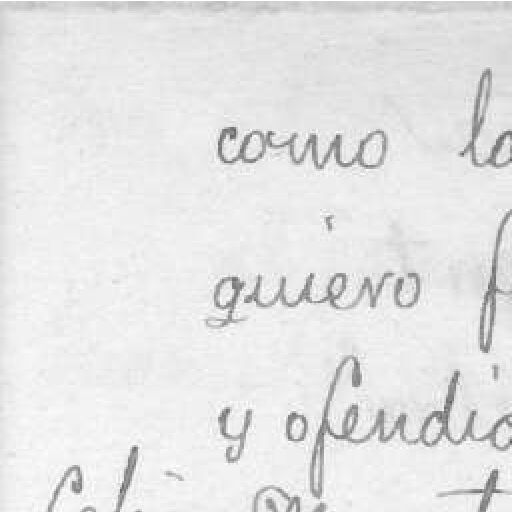 como lo
quiero f
y ofendio